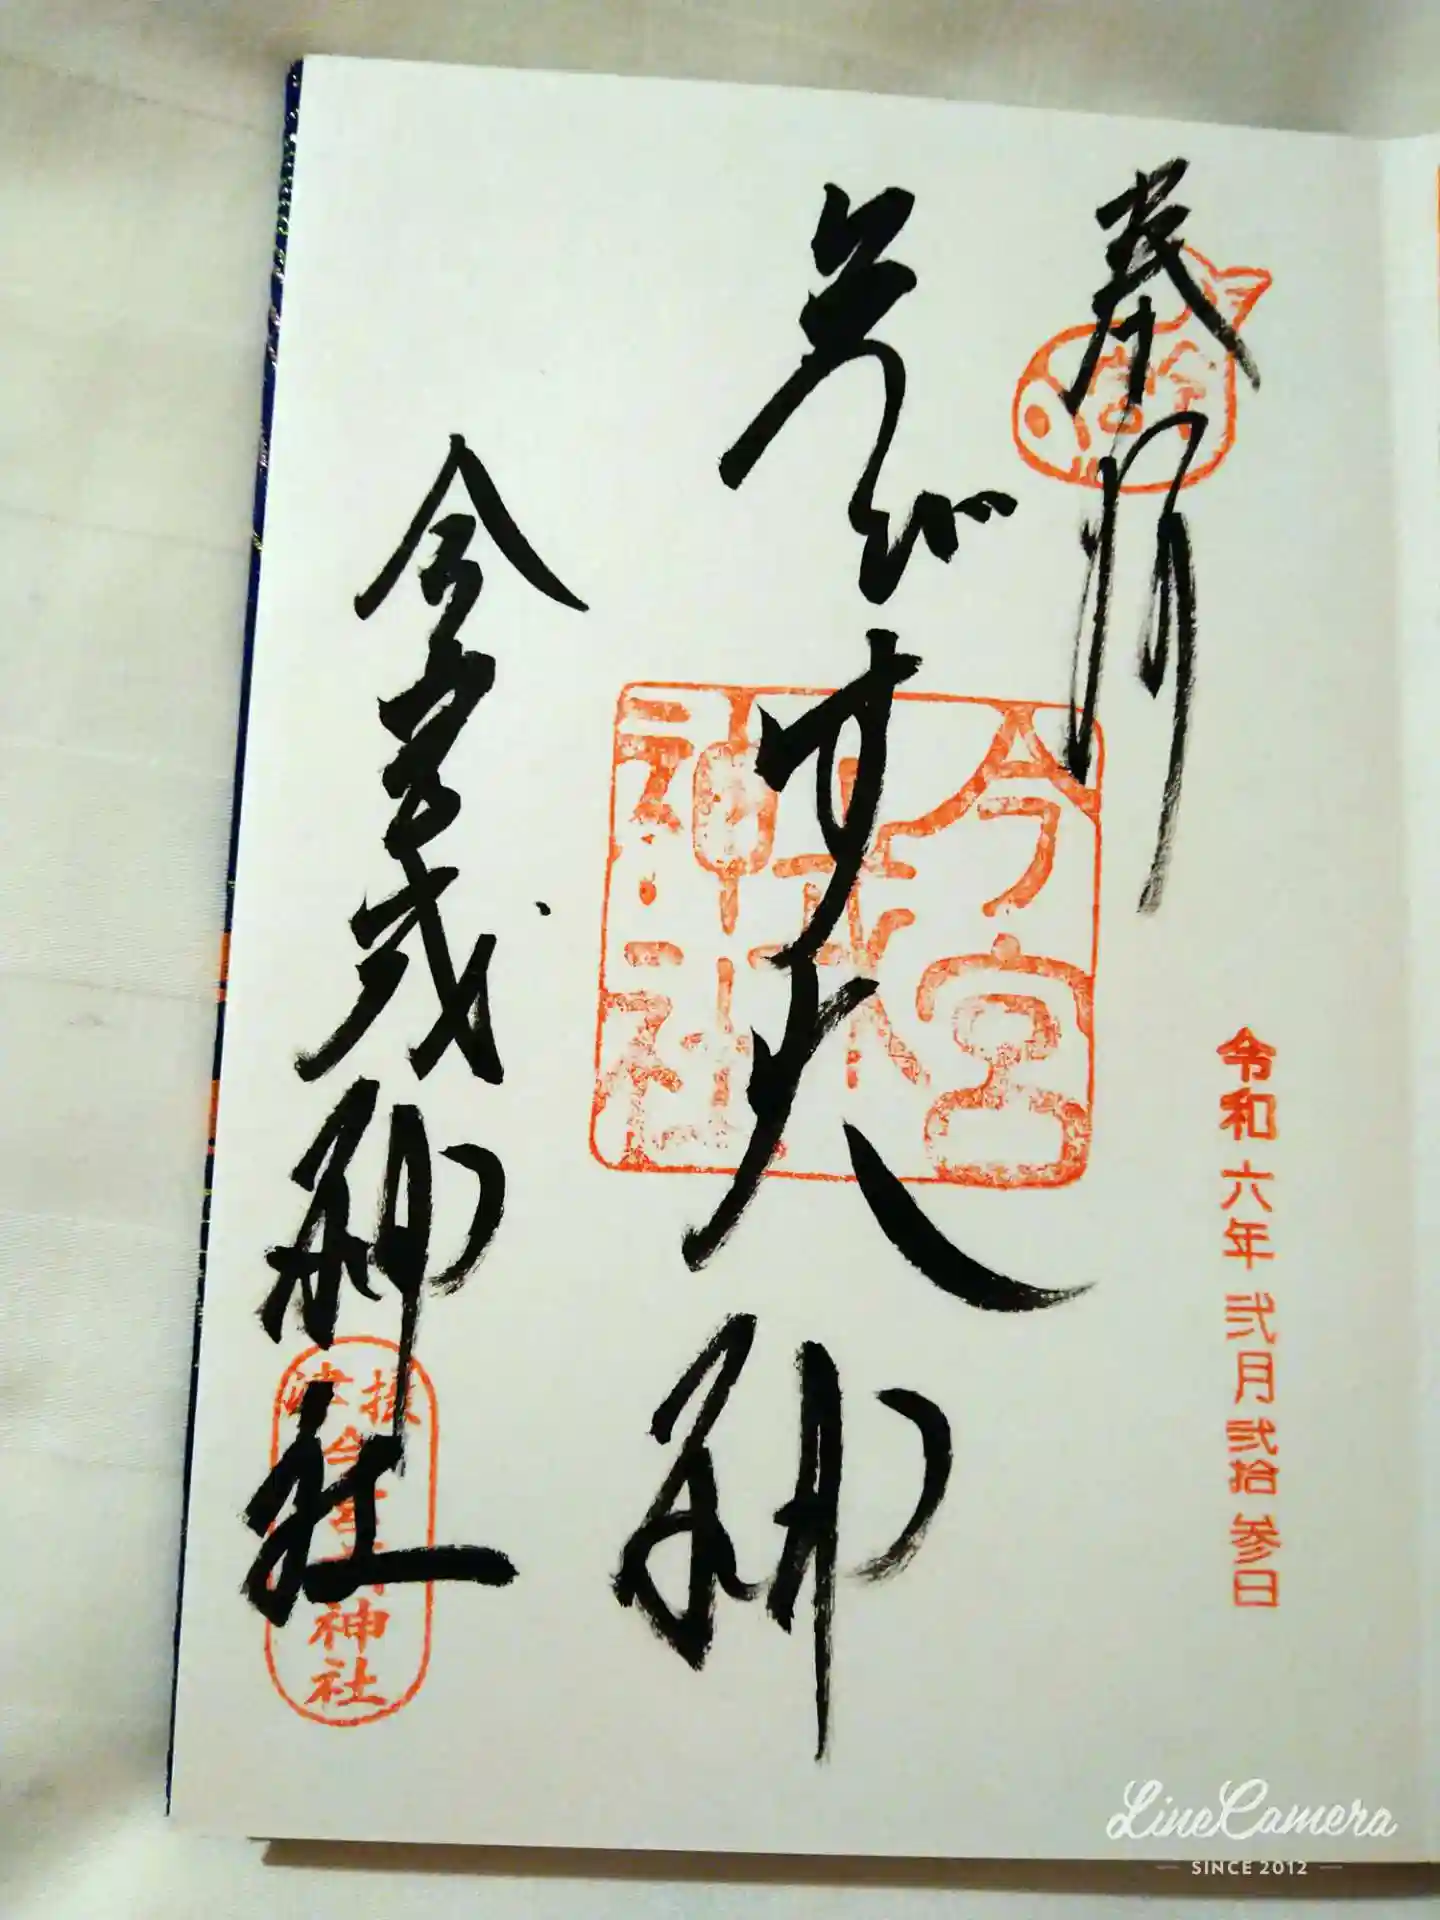 奉拝
令和六年弐月弐拾参日
えびす大神
今宮
戎
神社
今宮戎神社
摂津
今宮戎神社
LINE Camera
SINCE 2012